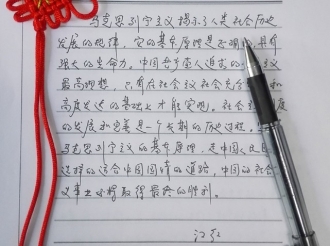 马克思列宁主义揭示了人类社会历史
发展的规律，它的基本原理是正确的，具有
强大的生命力。中国共产党人追求的主义
最高理想，只有在社会主义社会充分
高度发达的基础上才能实现。社会主义
的发展和完善是一个长期的历史过程。
马克思列宁主义的基本原理，走中国人民
选择的适合中国国情的道路，中国的社会
义事业必将取得最终的胜利。